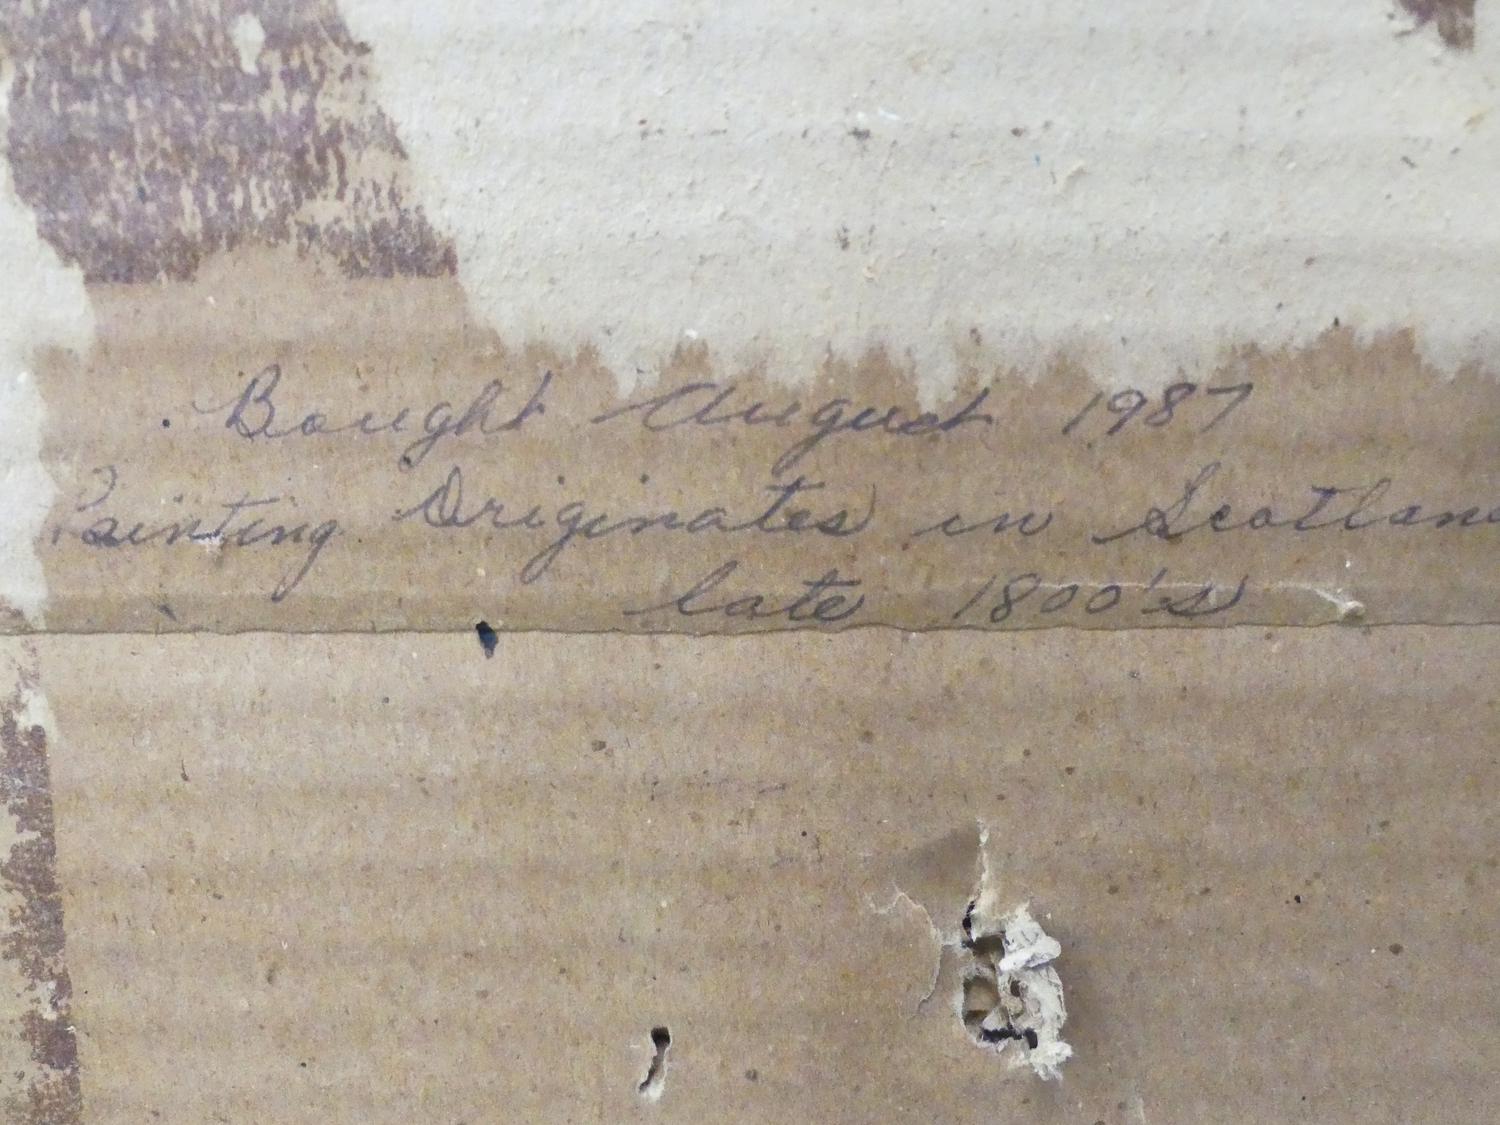 Bought August 1987
Painting Originates in Scotland
late 1800's